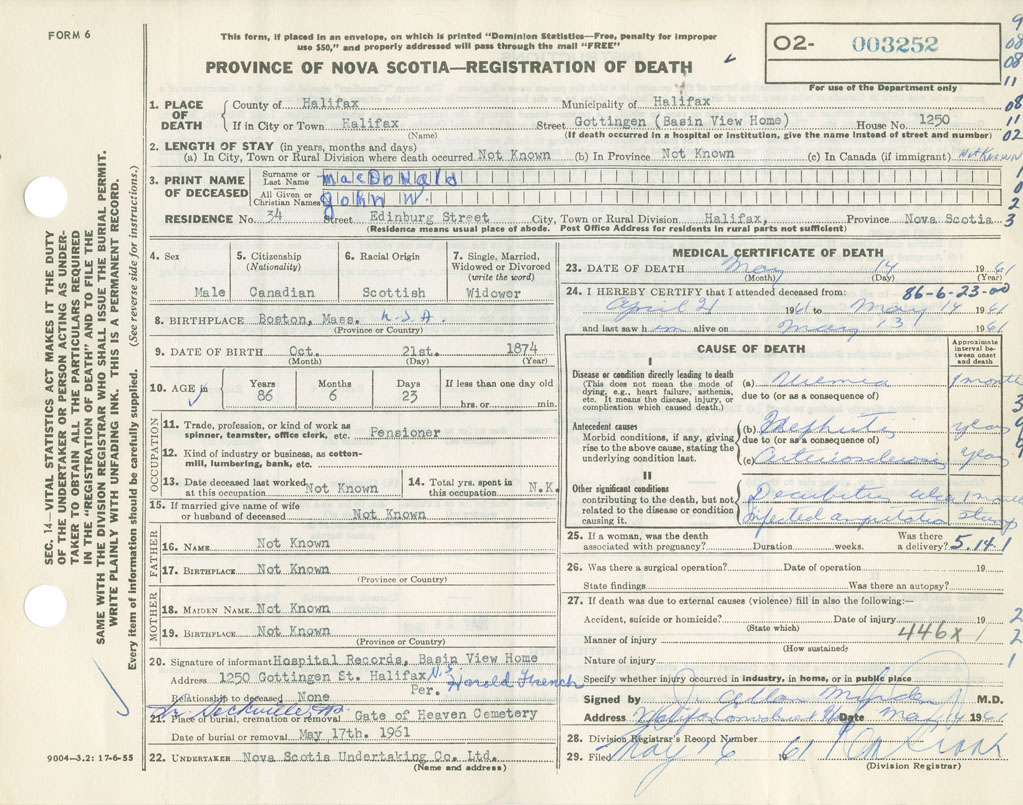 FORM 6
This form, if placed in an envelope, on which is printed "Dominion Statistics—Free, penalty for improper
use $50," and properly addressed will pass through the mail "FREE"
PROVINCE OF NOVA SCOTIA—REGISTRATION OF DEATH
02- 003252
For use of the Department only
1. PLACE OF DEATH County of Halifax Municipality of Halifax
If in City or Town Halifax Street Gottingen (Basin View Home) House No. 1250
(Name) (If death occurred in a hospital or institution, give the name instead of street and number)
2. LENGTH OF STAY (in years, months and days)
(a) In City, Town or Rural Division where death occurred Not Known (b) In Province Not Known (c) In Canada (if immigrant) Not Known
3. PRINT NAME OF DECEASED Surname or Last Name MacDonald
All Given or Christian Names John W.
RESIDENCE No. 34 Street Edinburg Street City, Town or Rural Division Halifax, Province Nova Scotia
(Residence means usual place of abode. Post Office Address for residents in rural parts not sufficient)
4. Sex
Male
5. Citizenship (Nationality)
Canadian
6. Racial Origin
Scottish
7. Single, Married, Widowed or Divorced (write the word)
Widower
8. BIRTHPLACE Boston, Mass. U.S.A.
(Province or Country)
9. DATE OF BIRTH Oct. 21st. 1874
(Month) (Day) (Year)
10. AGE in Years Months Days If less than one day old
86 6 23 hrs. or min.
OCCUPATION
11. Trade, profession, or kind of work as
spinner, teamster, office clerk, etc. Pensioner
12. Kind of industry or business, as cotton-
mill, lumbering, bank, etc.
13. Date deceased last worked at this occupation Not Known
14. Total yrs. spent in this occupation N.K.
15. If married give name of wife
or husband of deceased Not Known
FATHER
16. NAME Not Known
17. BIRTHPLACE Not Known
(Province or Country)
MOTHER
18. MAIDEN NAME Not Known
19. BIRTHPLACE Not Known
(Province or Country)
20. Signature of informant Hospital Records, Basin View Home
Address 1250 Gottingen St. Halifax N.S.
Relationship to deceased None Per. Harold French
21. Place of burial, cremation or removal Gate of Heaven Cemetery
Date of burial or removal May 17th. 1961
22. UNDERTAKER Nova Scotia Undertaking Co. Ltd.
(Name and address)
MEDICAL CERTIFICATE OF DEATH
23. DATE OF DEATH May 14 1961
(Month) (Day) (Year)
24. I HEREBY CERTIFY that I attended deceased from: 86-6-23-00
April 21 1961 to May 14 1961
and last saw him alive on May 13 1961
CAUSE OF DEATH
Approximate interval between onset and death
I
Disease or condition directly leading to death (a) Uremia 1 month
(This does not mean the mode of due to (or as a consequence of)
dying, e.g., heart failure, asthenia,
etc. It means the disease, injury, or
complication which caused death.)
Antecedent causes (b) Nephritis years
Morbid conditions, if any, giving due to (or as a consequence of)
rise to the above cause, stating the
underlying condition last. (c) Arteriosclerosis years
II
Other significant conditions Decubitus ulcer
contributing to the death, but not
related to the disease or condition
causing it. Infected amputation stump
25. If a woman, was the death Was there
associated with pregnancy? Duration weeks. a delivery? 5.14.1
26. Was there a surgical operation? Date of operation 19
State findings Was there an autopsy?
27. If death was due to external causes (violence) fill in also the following:—
Accident, suicide or homicide? Date of injury 19
(State which)
Manner of injury 446X
(How sustained)
Nature of injury
Specify whether injury occurred in industry, in home, or in public place
Signed by M.D.
Address Date May 14 1961
28. Division Registrar's Record Number
29. Filed May 16 1961
(Division Registrar)
SEC. 14—VITAL STATISTICS ACT MAKES IT THE DUTY
OF THE UNDERTAKER OR PERSON ACTING AS UNDER-
TAKER TO OBTAIN ALL THE PARTICULARS REQUIRED
IN THE "REGISTRATION OF DEATH" AND TO FILE THE
SAME WITH THE DIVISION REGISTRAR WHO SHALL ISSUE THE BURIAL PERMIT.
WRITE PLAINLY WITH UNFADING INK. THIS IS A PERMANENT RECORD.
Every item of information should be carefully supplied. (See reverse side for instructions.)
9004—3.2: 17-6-55